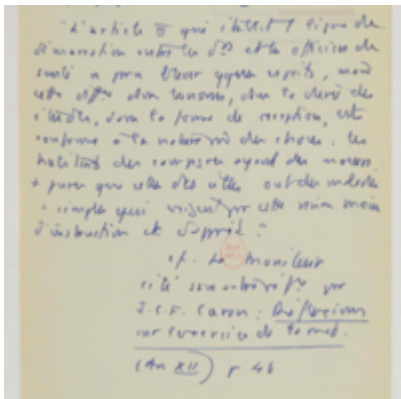 "L'article III qui établit 1 ligne de
démarcation entre les Drs et les officiers de
santé a paru blesser qques esprits, mais
cette diffce dans l'annonce, dans la durée des
études, dans la forme de réception, est
conforme à la nature des choses. Les
habitants des campagnes ayant des moeurs
+ pures que celles des villes ont des maladies
+ simples qui exigent par cette raison moins
d'instruction et d'apprêt."
cf. Le Moniteur
cité sans référence par
J.C.F. Caron : Réflexions
sur l'exercice de la méd.
(An XII) p 46